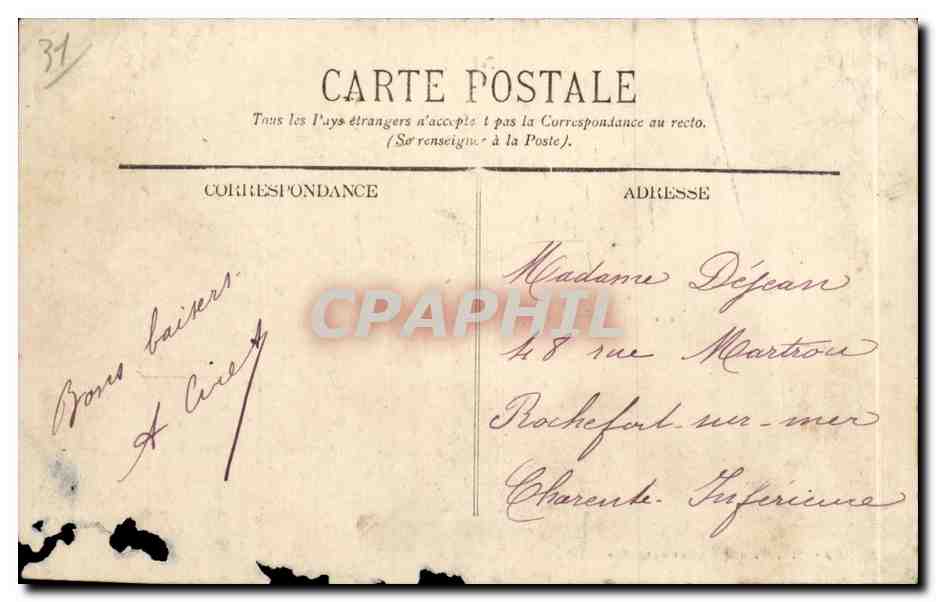 31
CARTE POSTALE
Tous les Pays étrangers n'acceptent pas la Correspondance au recto.
(Se renseigner à la Poste).
CORRESPONDANCE
ADRESSE
Bons baisers
A
Madame Déjean
48 rue Martrou
Rochefort-sur-mer
Charente-Inférieure
CPAPHIL